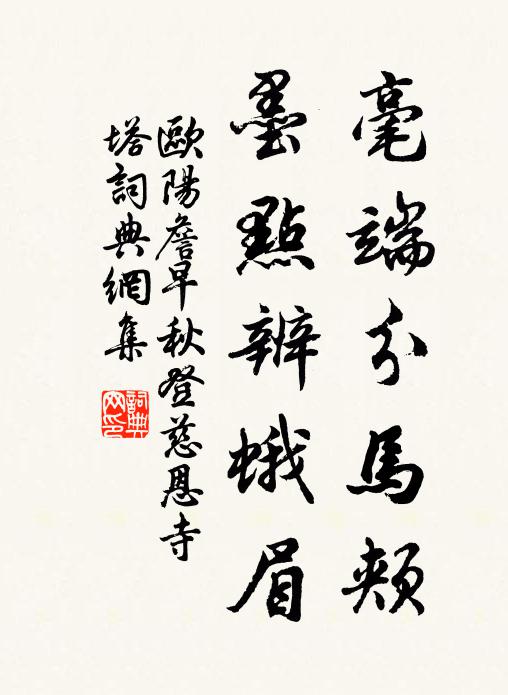 毫端分馬頰
墨點辨蛾眉
歐陽詹早秋登慈恩寺
塔詞典網集
詞典
网印